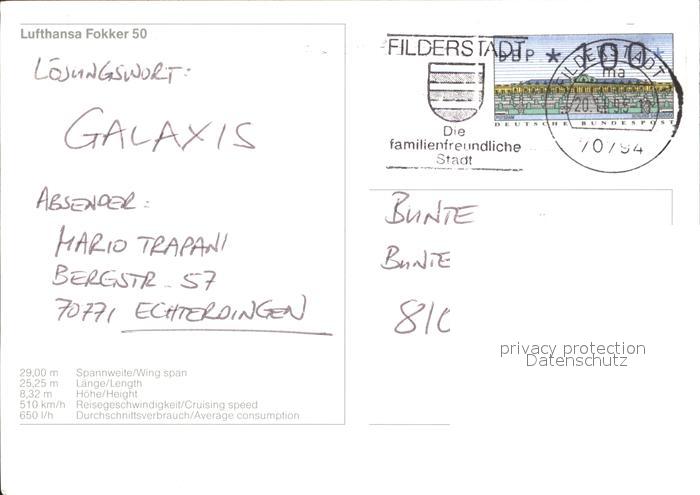 Lufthansa Fokker 50
LÖSUNGSWORT:
GALAXIS
ABSENDER:
MARIO TRAPANI
BERGSTR. 57
70771 ECHTERDINGEN
29,00 m Spannweite/Wing span
25,25 m Länge/Length
8,32 m Höhe/Height
510 km/h Reisegeschwindigkeit/Cruising speed
650 l/h Durchschnittsverbrauch/Average consumption
FILDERSTADT
Die
familienfreundliche
Stadt
DBP *100*
DEUTSCHE BUNDESPOST
FILDERSTADT
ma
70794
BUNTE
BUNTE
privacy protection
Datenschutz